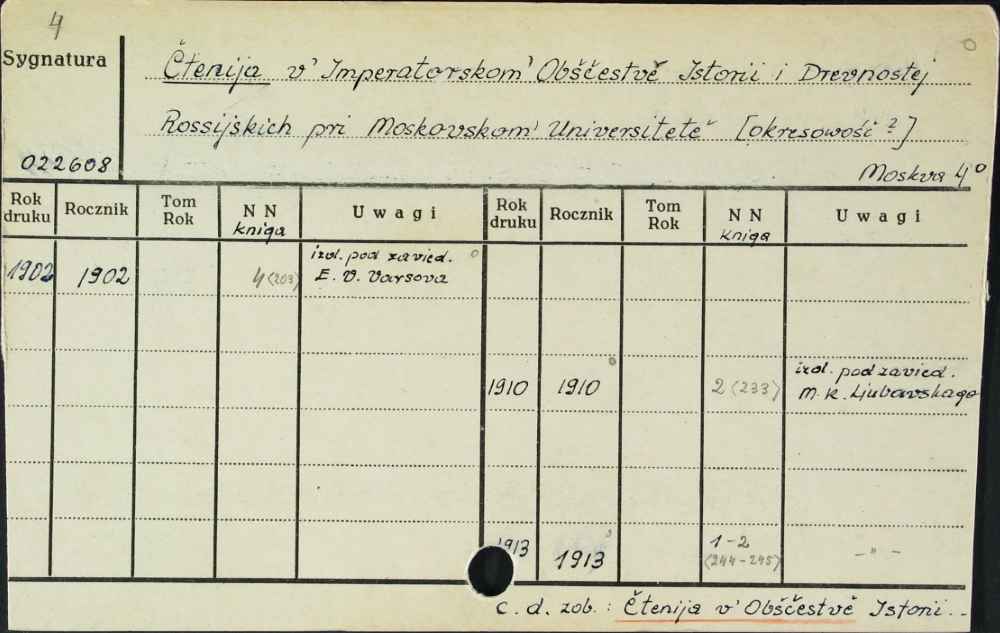 4
Sygnatura
Čtenija v' Imperatorskom' Obščestvě Istorii i Drevnostej
Rossijskich pri Moskovskom' Universitetě [okresowość ?]
022608
Moskva 4°
Rok druku Rocznik Tom Rok NN kniga Uwagi Rok druku Rocznik Tom Rok NN kniga Uwagi
1902 1902 4 (203) izd. pod zavied.
E. V. Varsova
1910 1910 2 (233) izd. pod zavied.
M. K. Ljubavskago
1913 1913 1-2
(244-245) -"-
c. d. zob.: Čtenija v' Obščestvě Istorii..